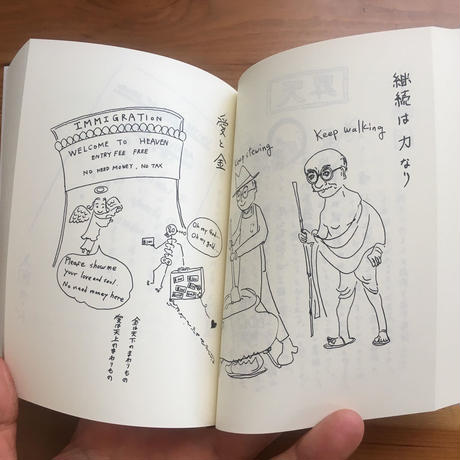 愛と金
IMMIGRATION
WELCOME TO HEAVEN
ENTRY FEE FREE
NO NEED MONEY, NO TAX
Oh my God...
Oh my gold
Please show me
your love and soul.
No need money here
金は天下のまわりもの
愛は天上のまわりもの
継続は力なり
Keep walking
stewing